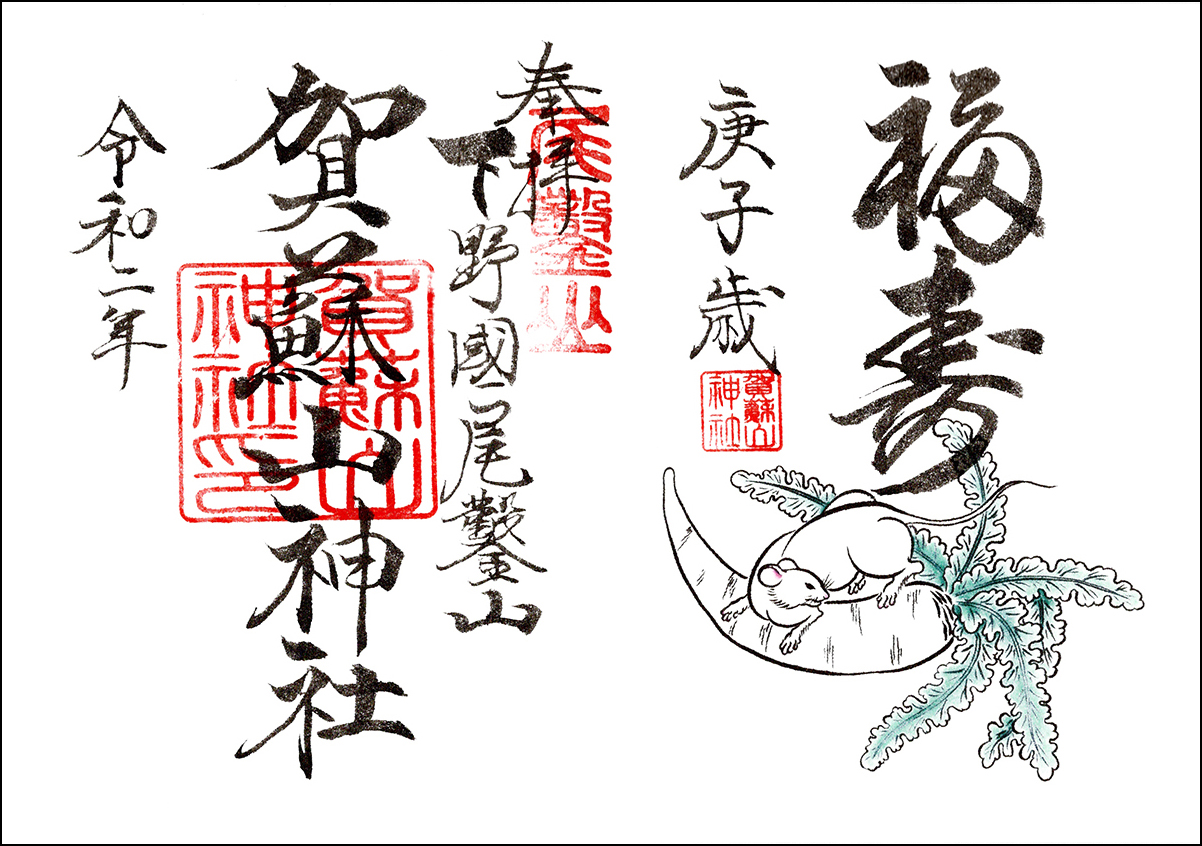 福寿
庚子歳
賀蘇山神社
奉拝
尾鑿山
下野國尾鑿山
賀蘇山神社
賀蘇山神社印
令和二年